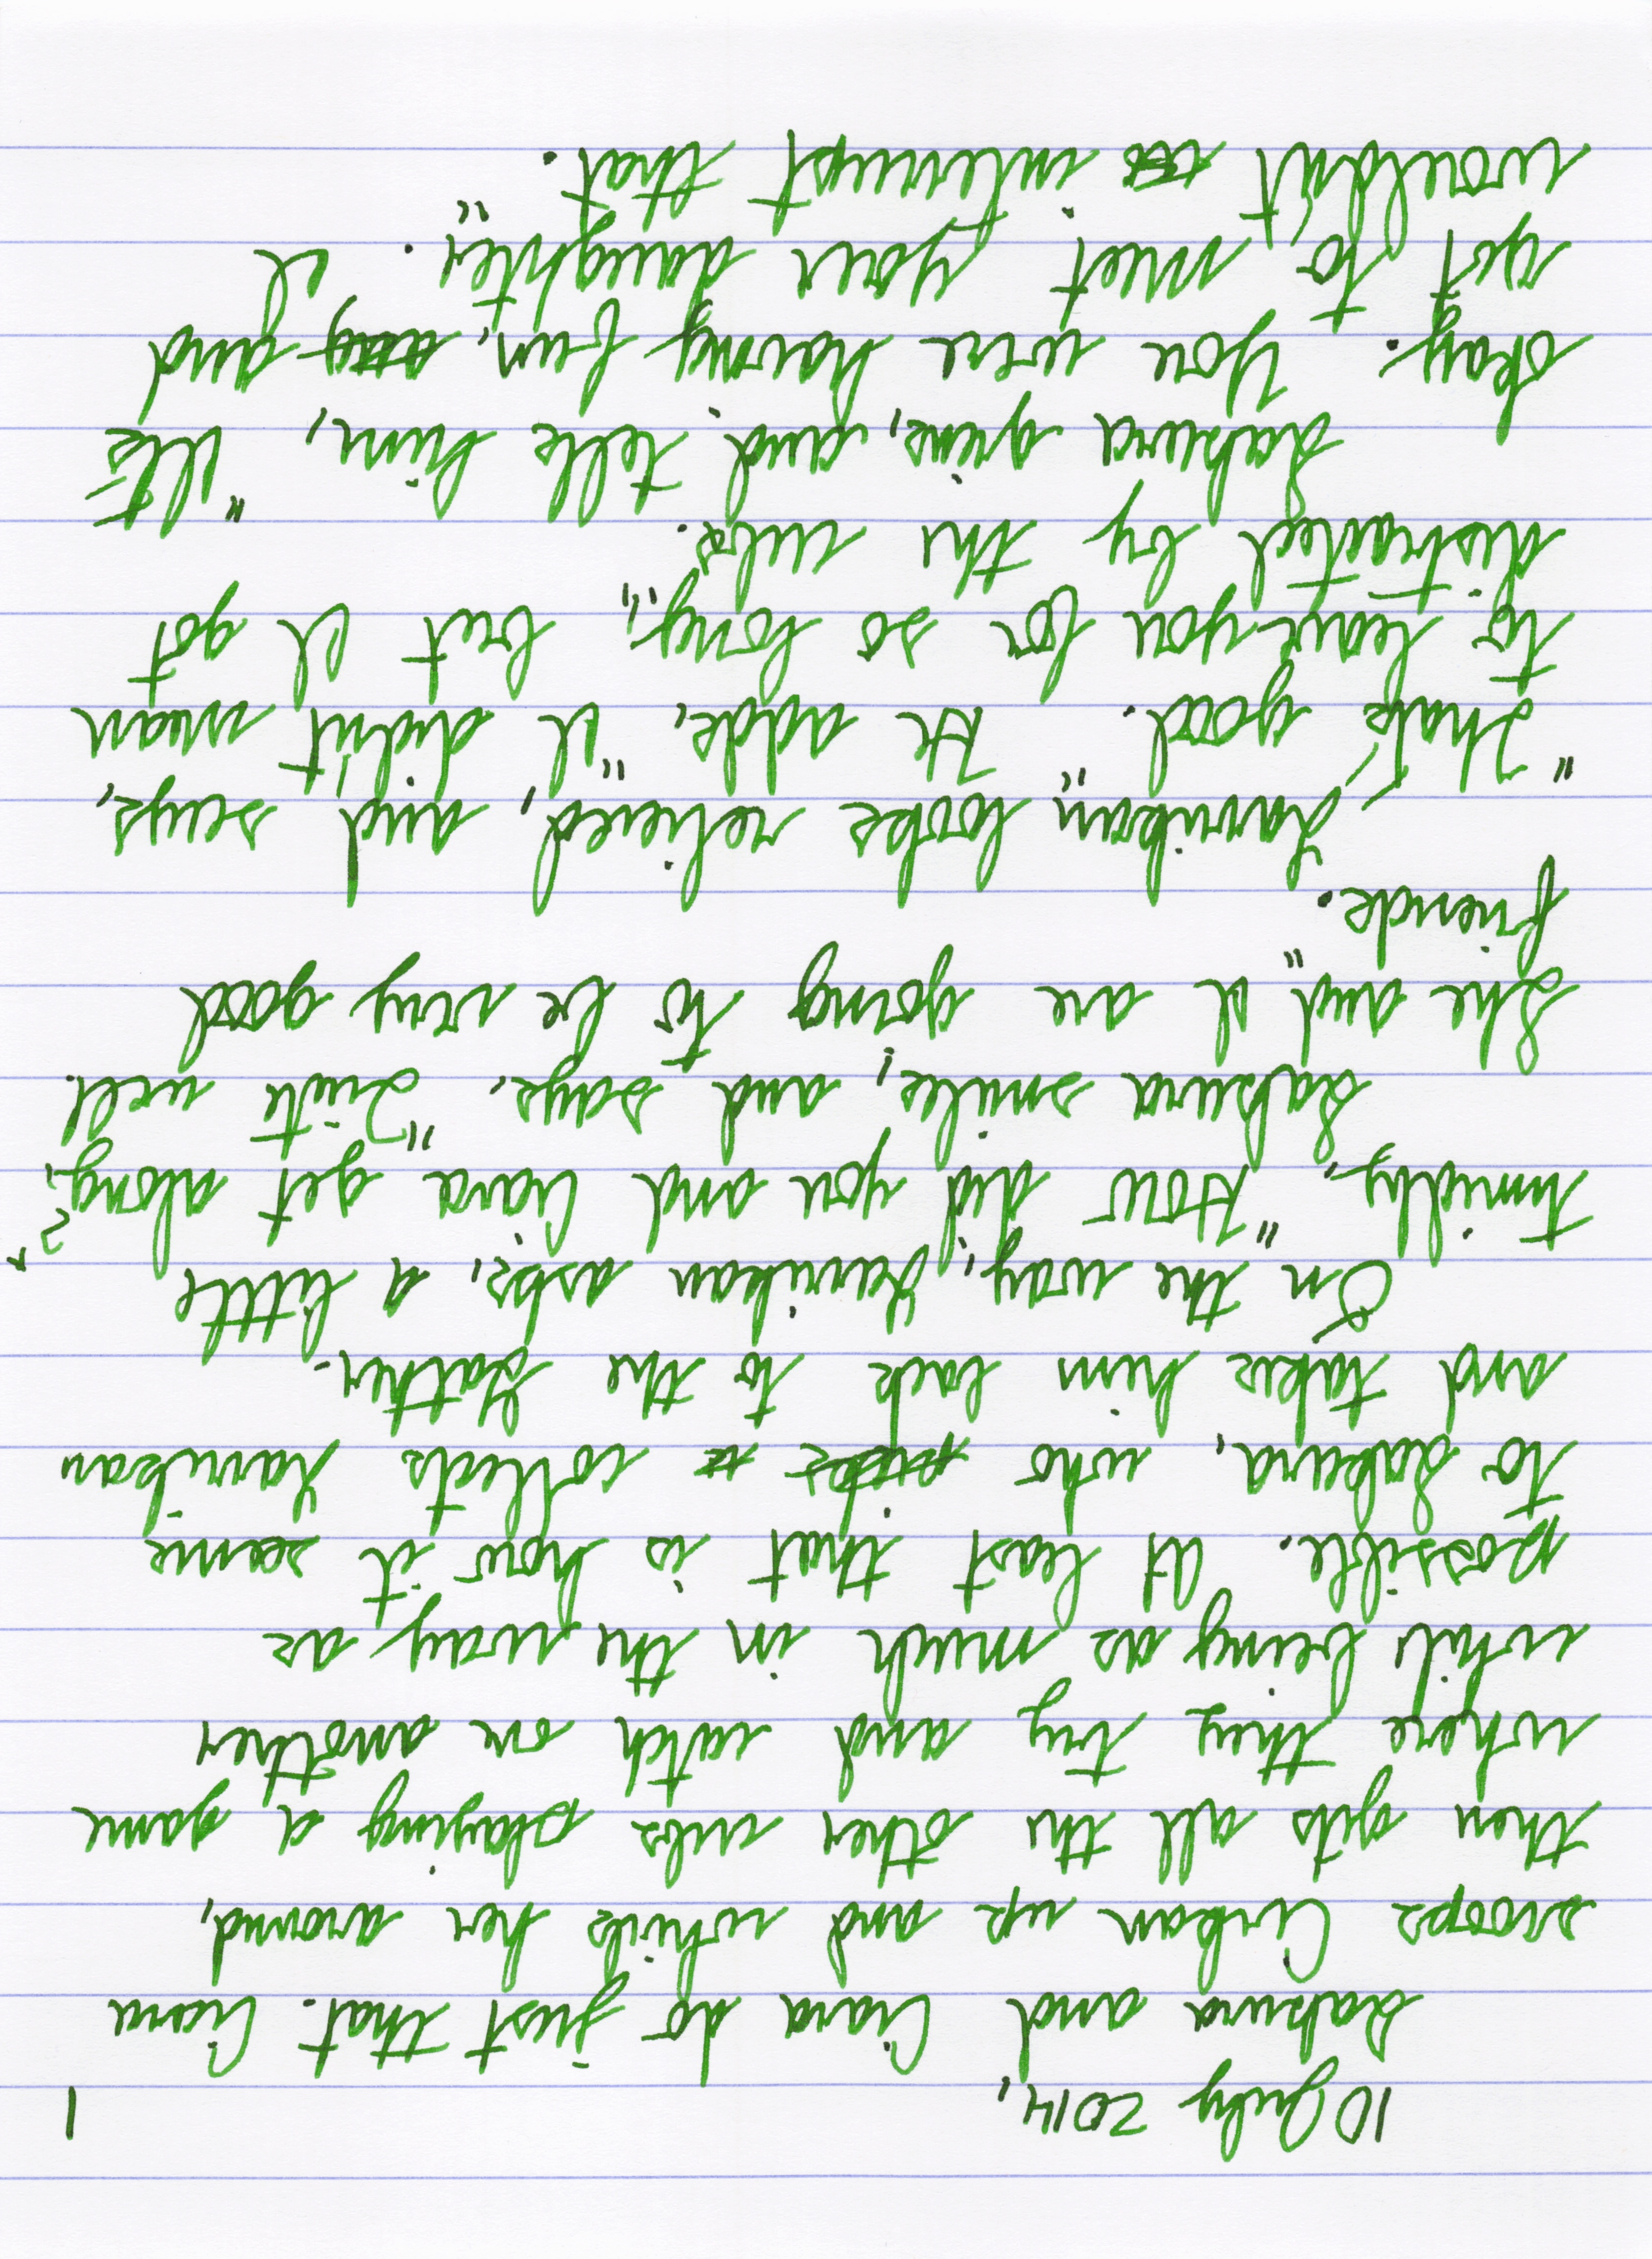 10 July 2014, 1
Sakura and Ciara do just that. Ciara
scoops Arkan up and whirls her around,
then gets all the other cubs playing a game
where they try and catch one another
while being as much in the way as
possible. At least that is how it seems
to Sakura, who collects Zarukan
and takes him back to the Gather.
On the way, Zarukan asks, a little
timidly, "How did you and Ciara get along?"
Sakura smiles, and says, "Quite well.
She and I are going to be very good
friends."
Zarukan looks relieved, and says,
"That's good." He adds, "I didn't mean
to leave you for so long, but I got
distracted by the cubs."
Sakura grins, and tells him, "It's
okay. You were having fun, and I
got to meet your daughter. I
wouldn't interrupt that."